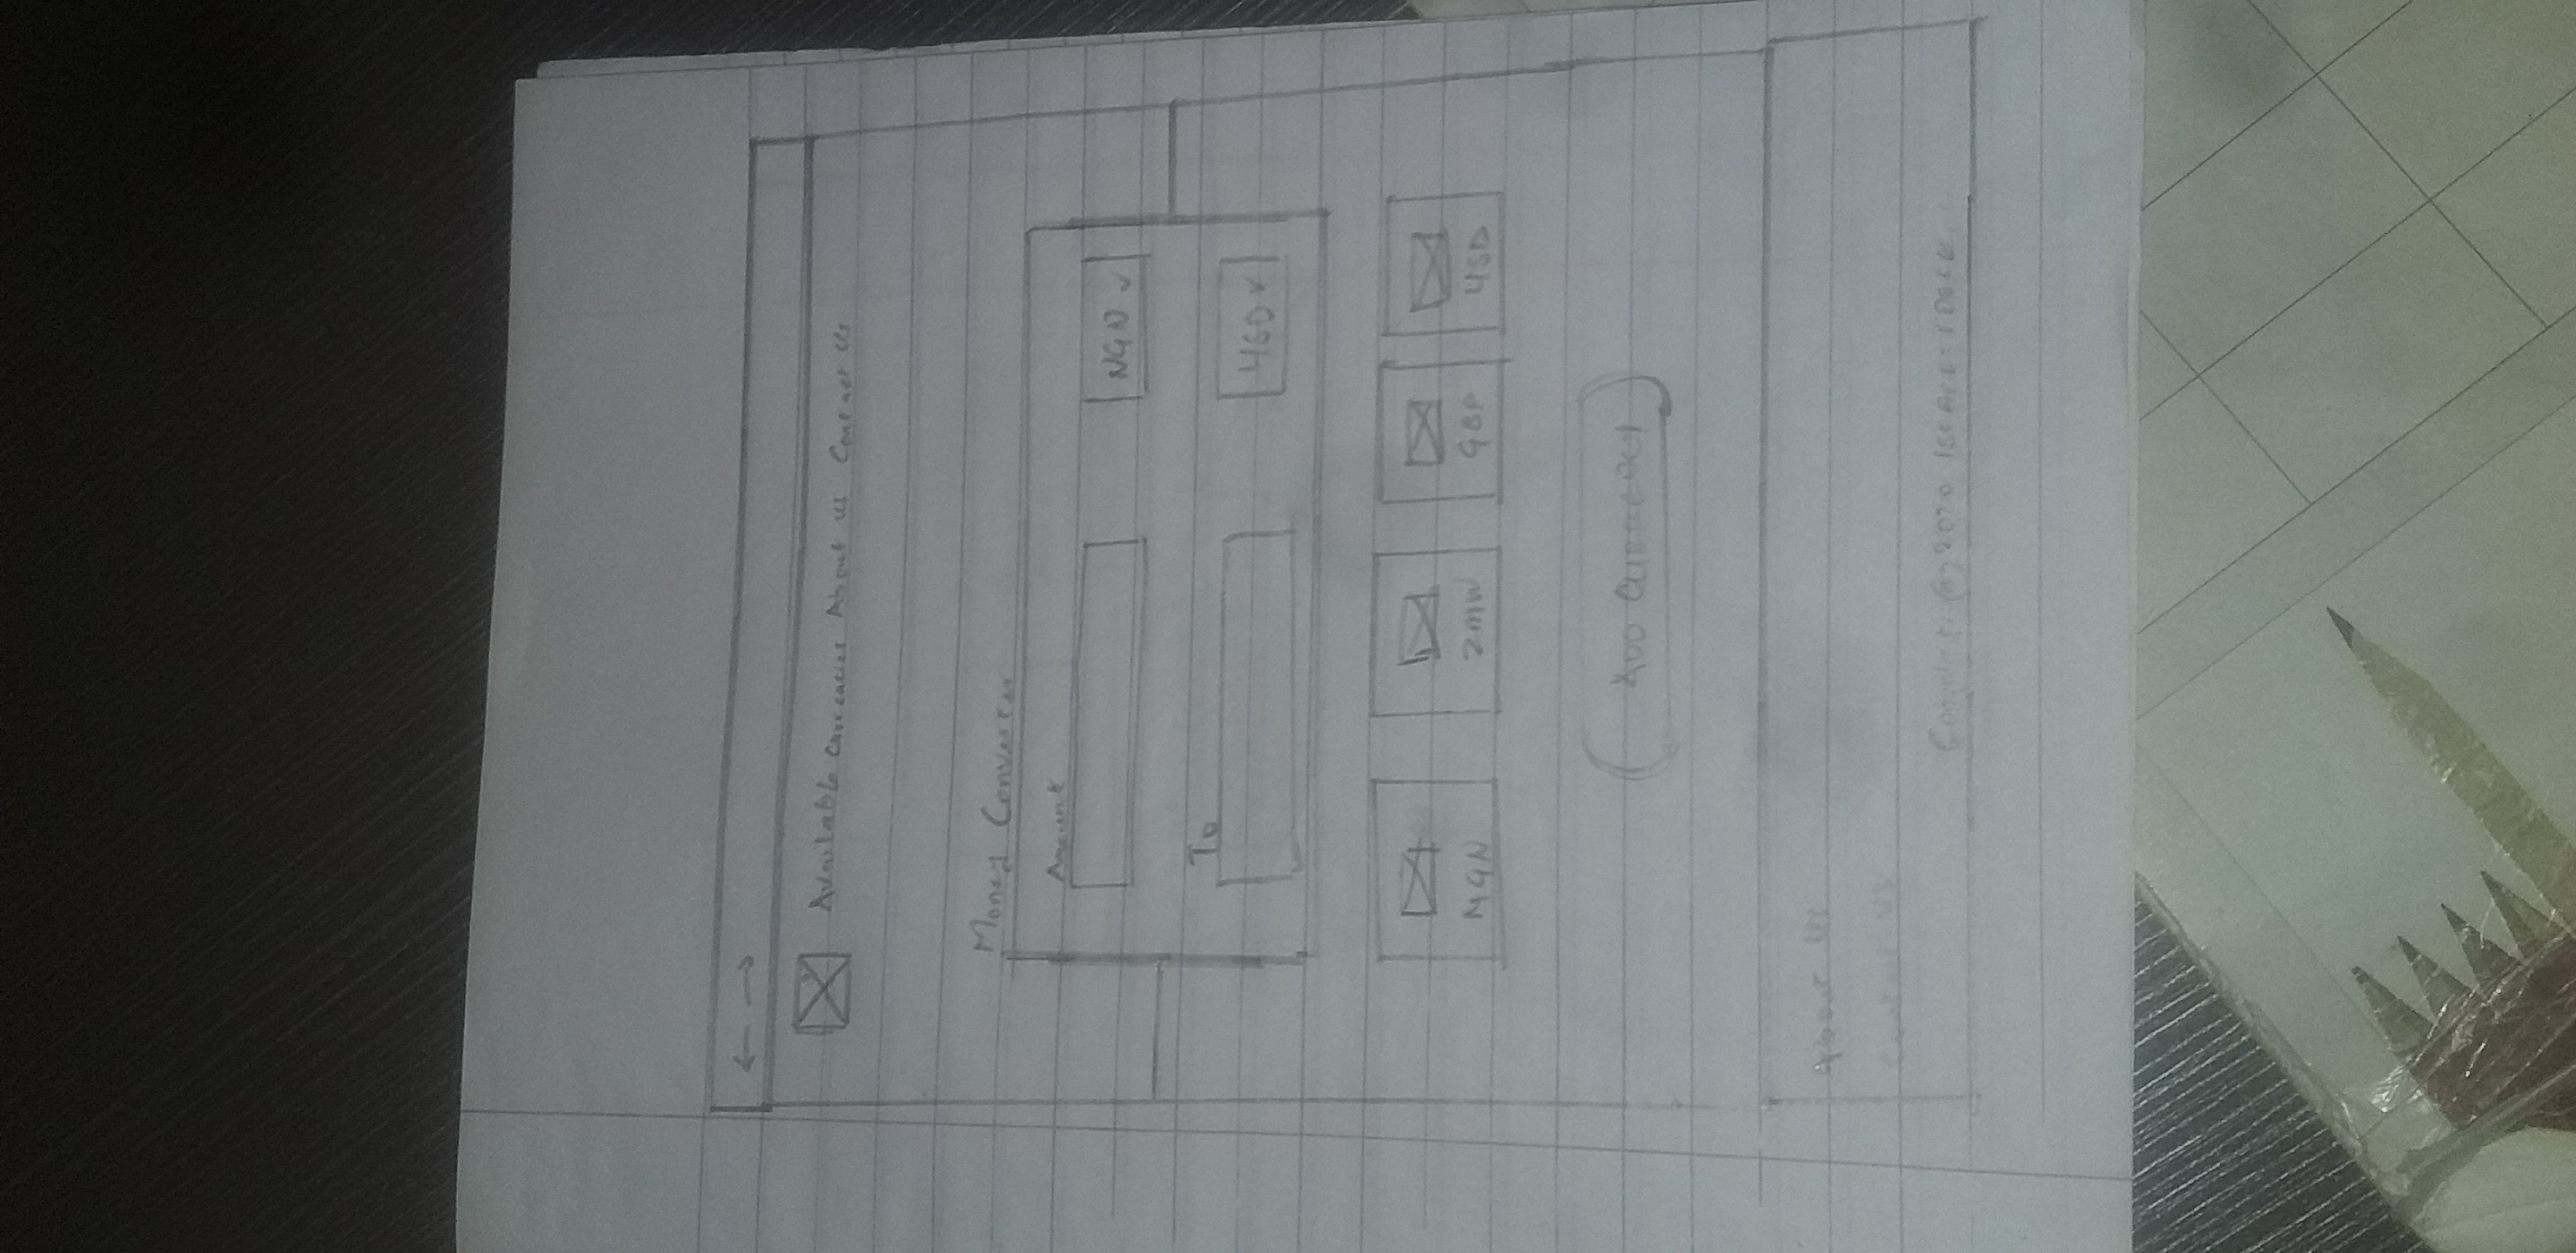 Available Currencies About us Contact Us
Money Converter
Amount
NGN
To
USD
NGN ZMW GBP USD
ADD CURRENCY
About Us
Contact US
2020